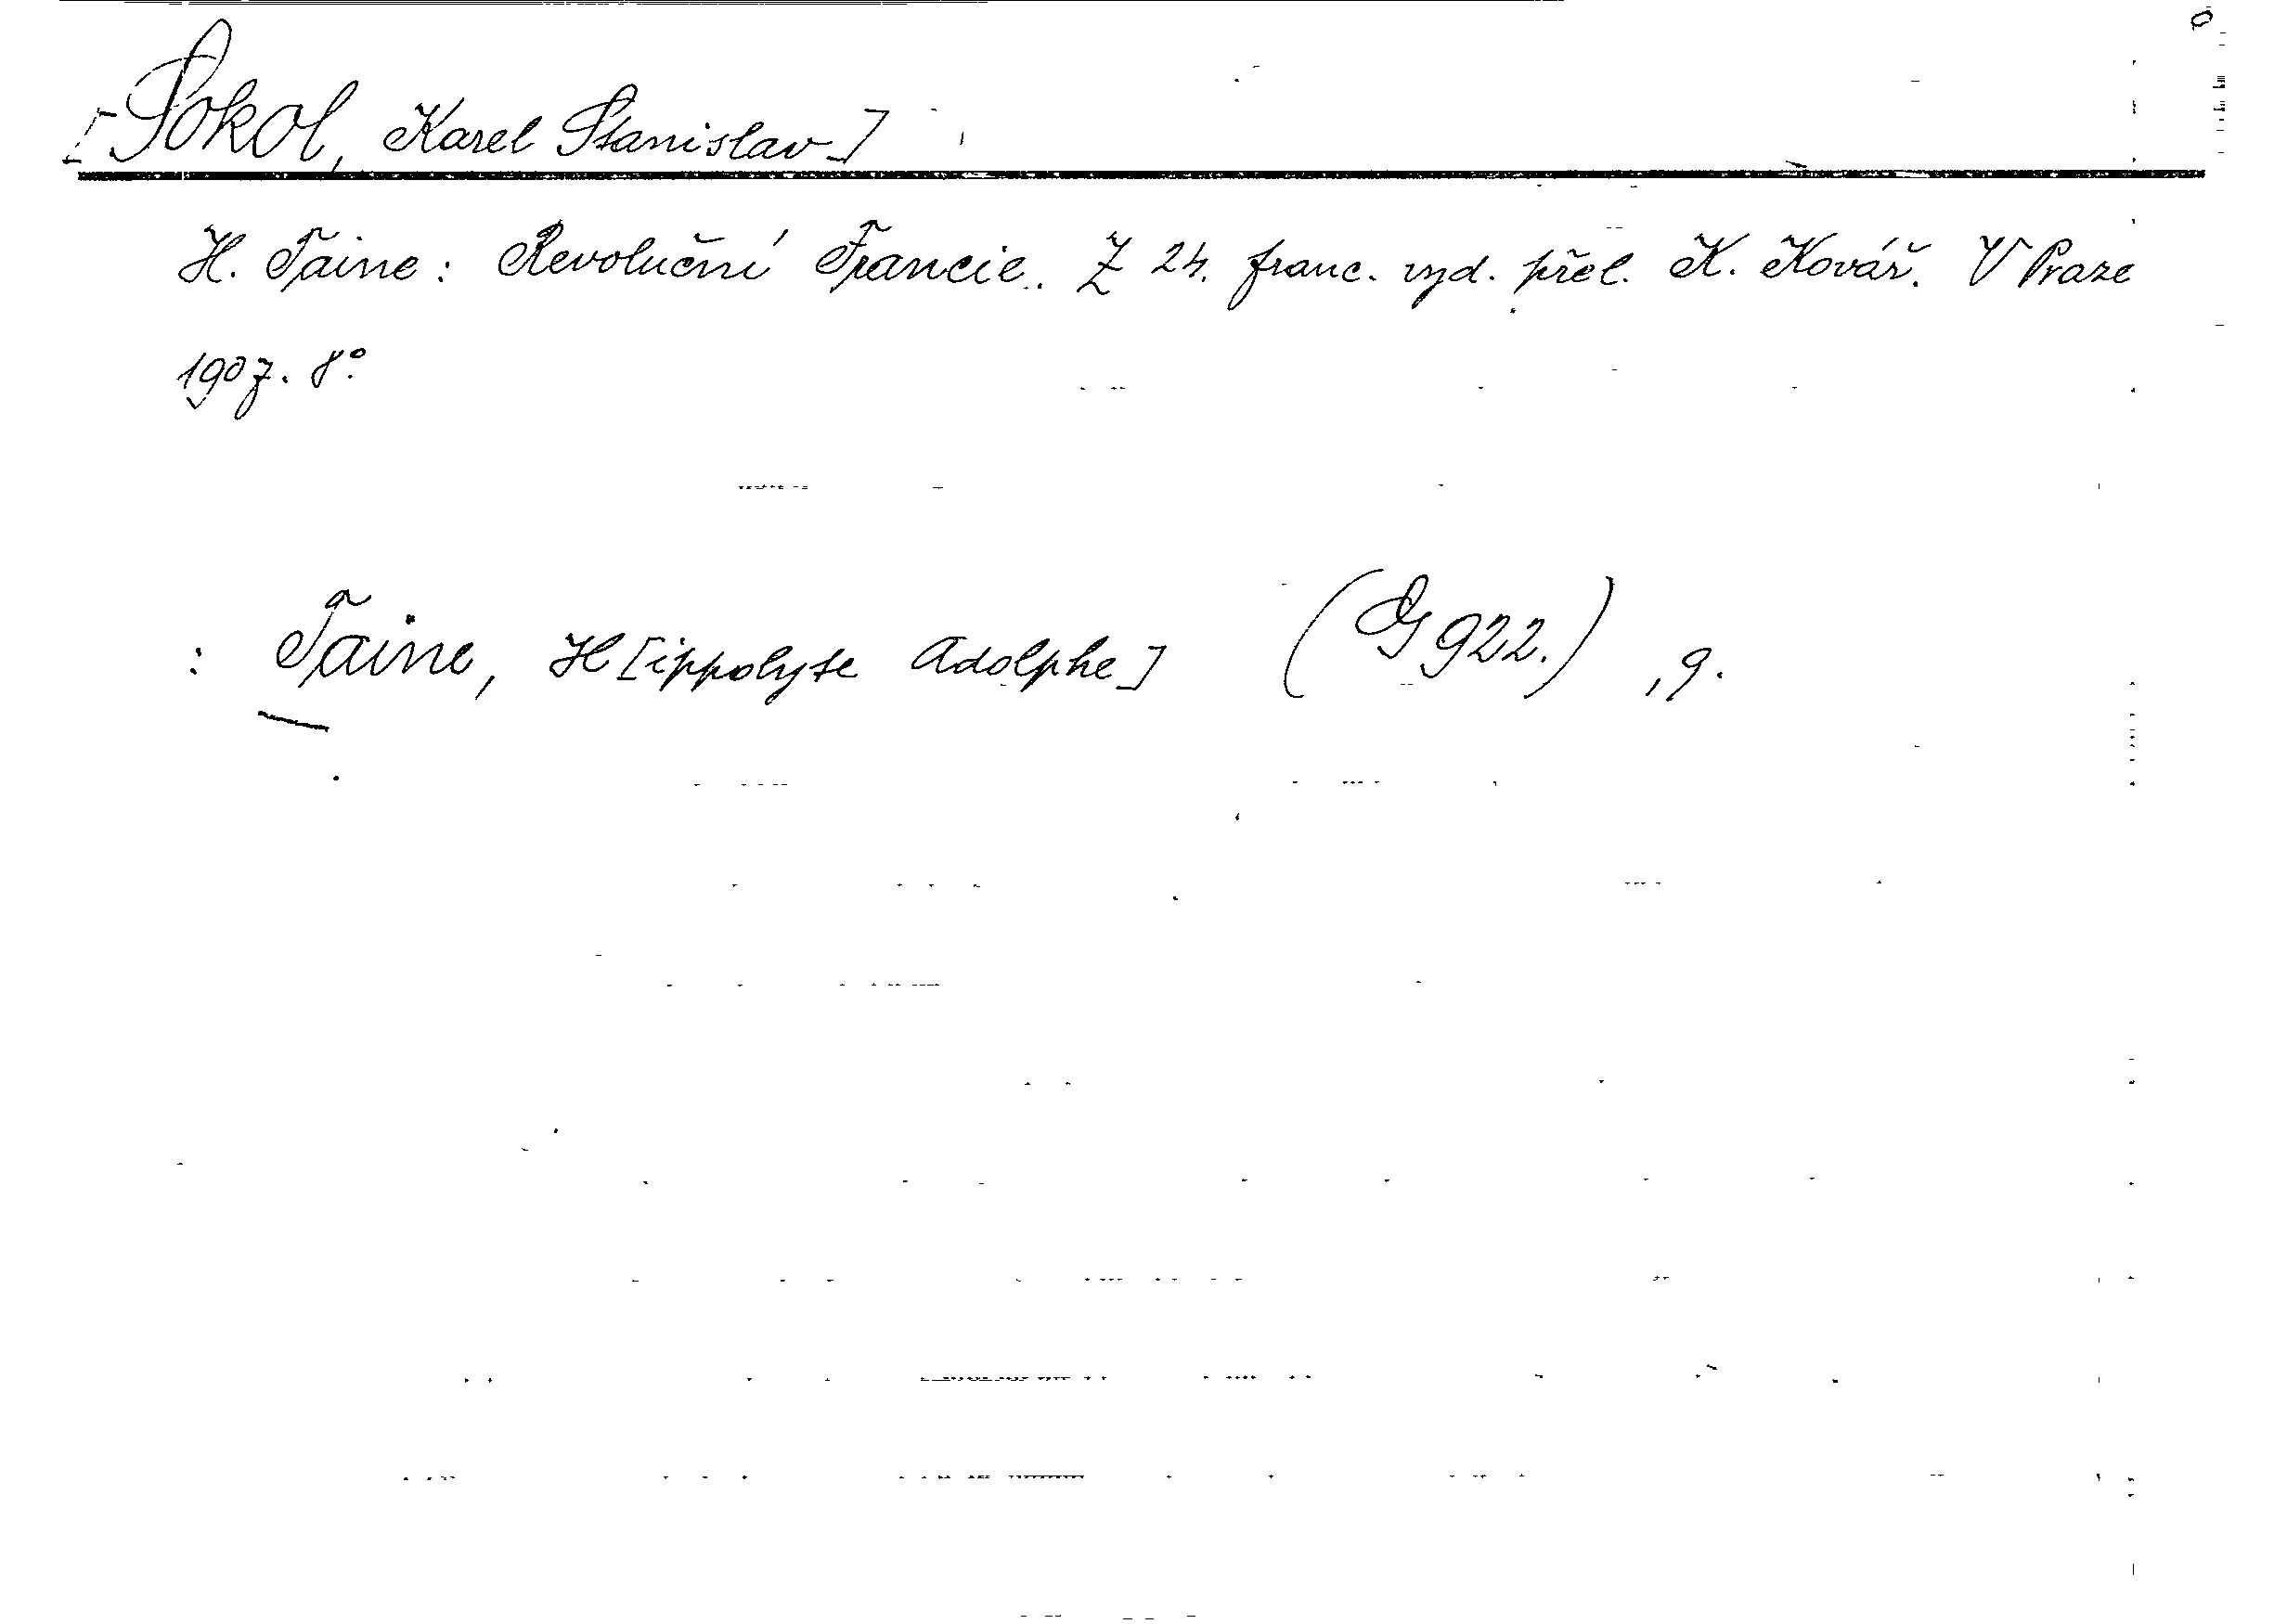 [Sokol, Karel Stanislav]
H. Taine: Revoluční Francie. Z 24. franc. vyd. přel. K. Kovář. V Praze
1907. 8°.
: Taine, H[ippolyte Adolphe] (G 922.) , 9.